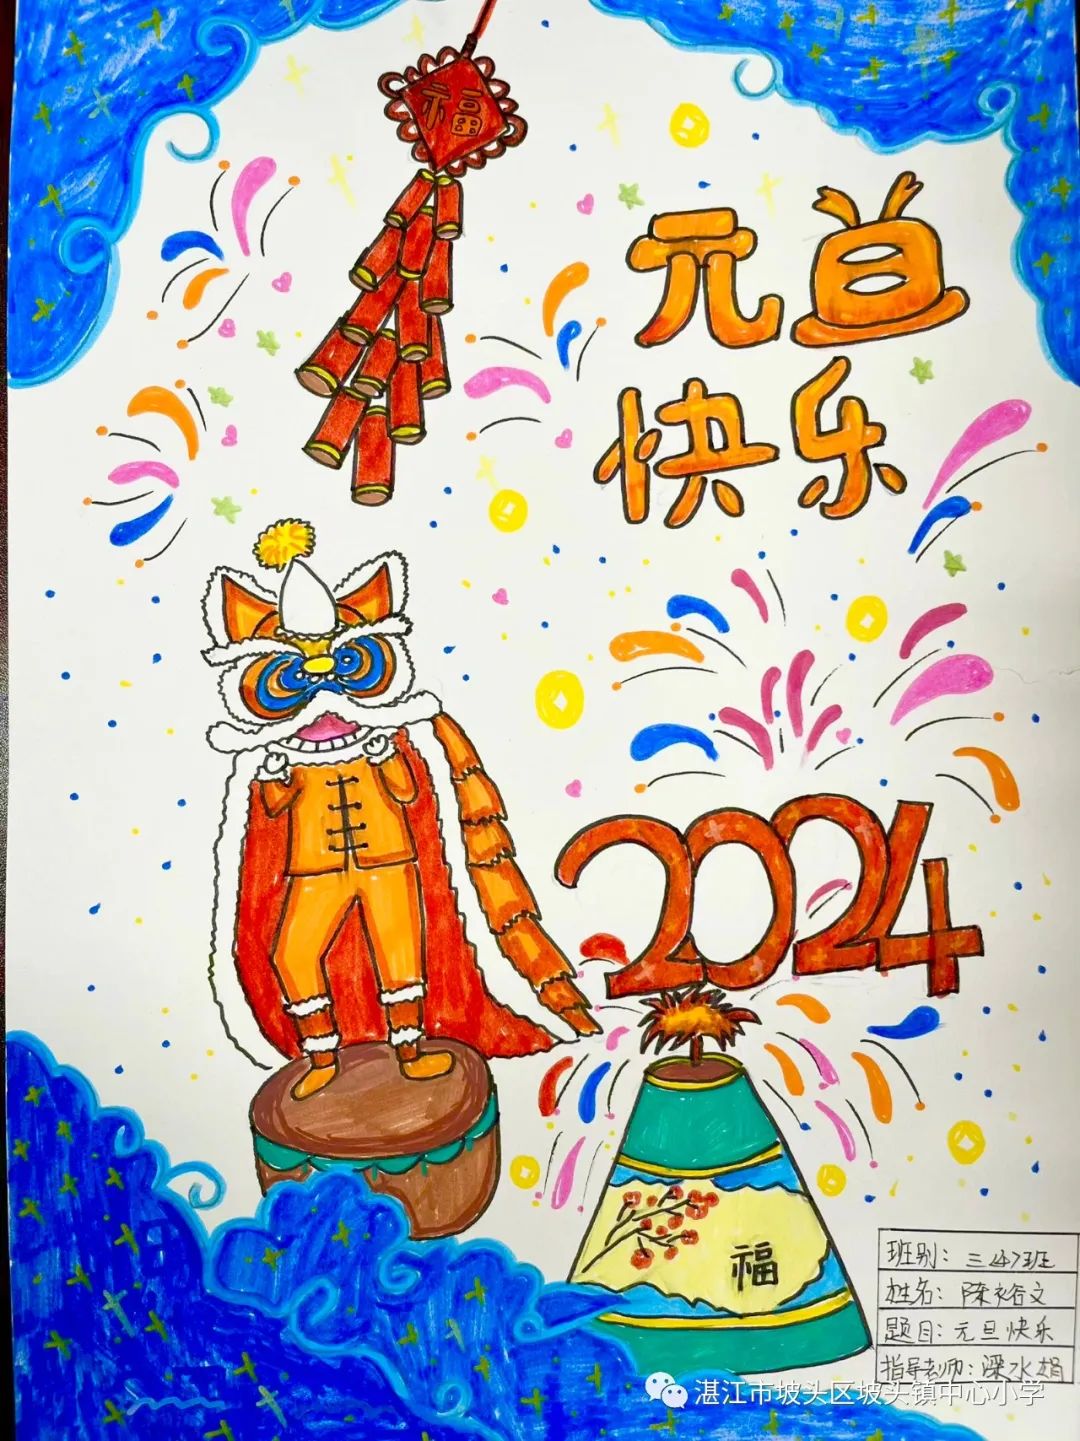 福
元旦
快乐
2024
福
班别：三(4)班
姓名：陈裕文
题目：元旦快乐
指导老师：梁水娟
湛江市坡头区坡头镇中心小学